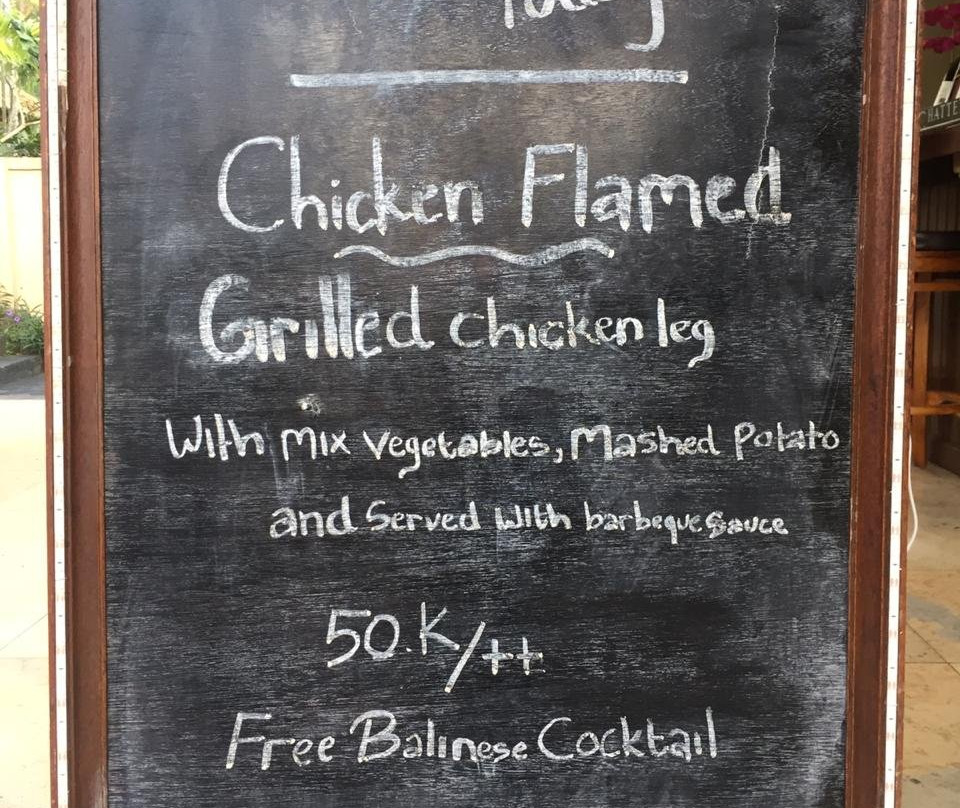 Today
Chicken Flamed
Grilled chicken leg
With mix vegetables, Mashed Potato
and Served with barbeque sauce
50.K/++
Free Balinese Cocktail